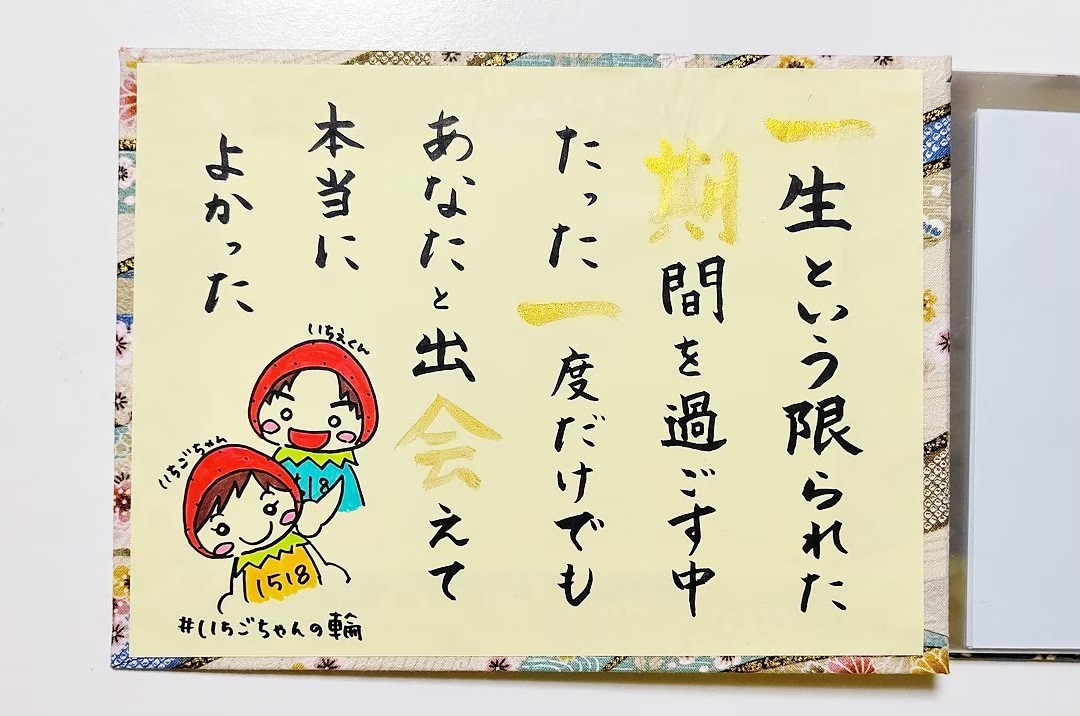 一生という限られた
期間を過ごす中
たった一度だけでも
あなたと出会えて
本当に
よかった
いちえくん
518
いちごちゃん
1518
#いちごちゃんの輪